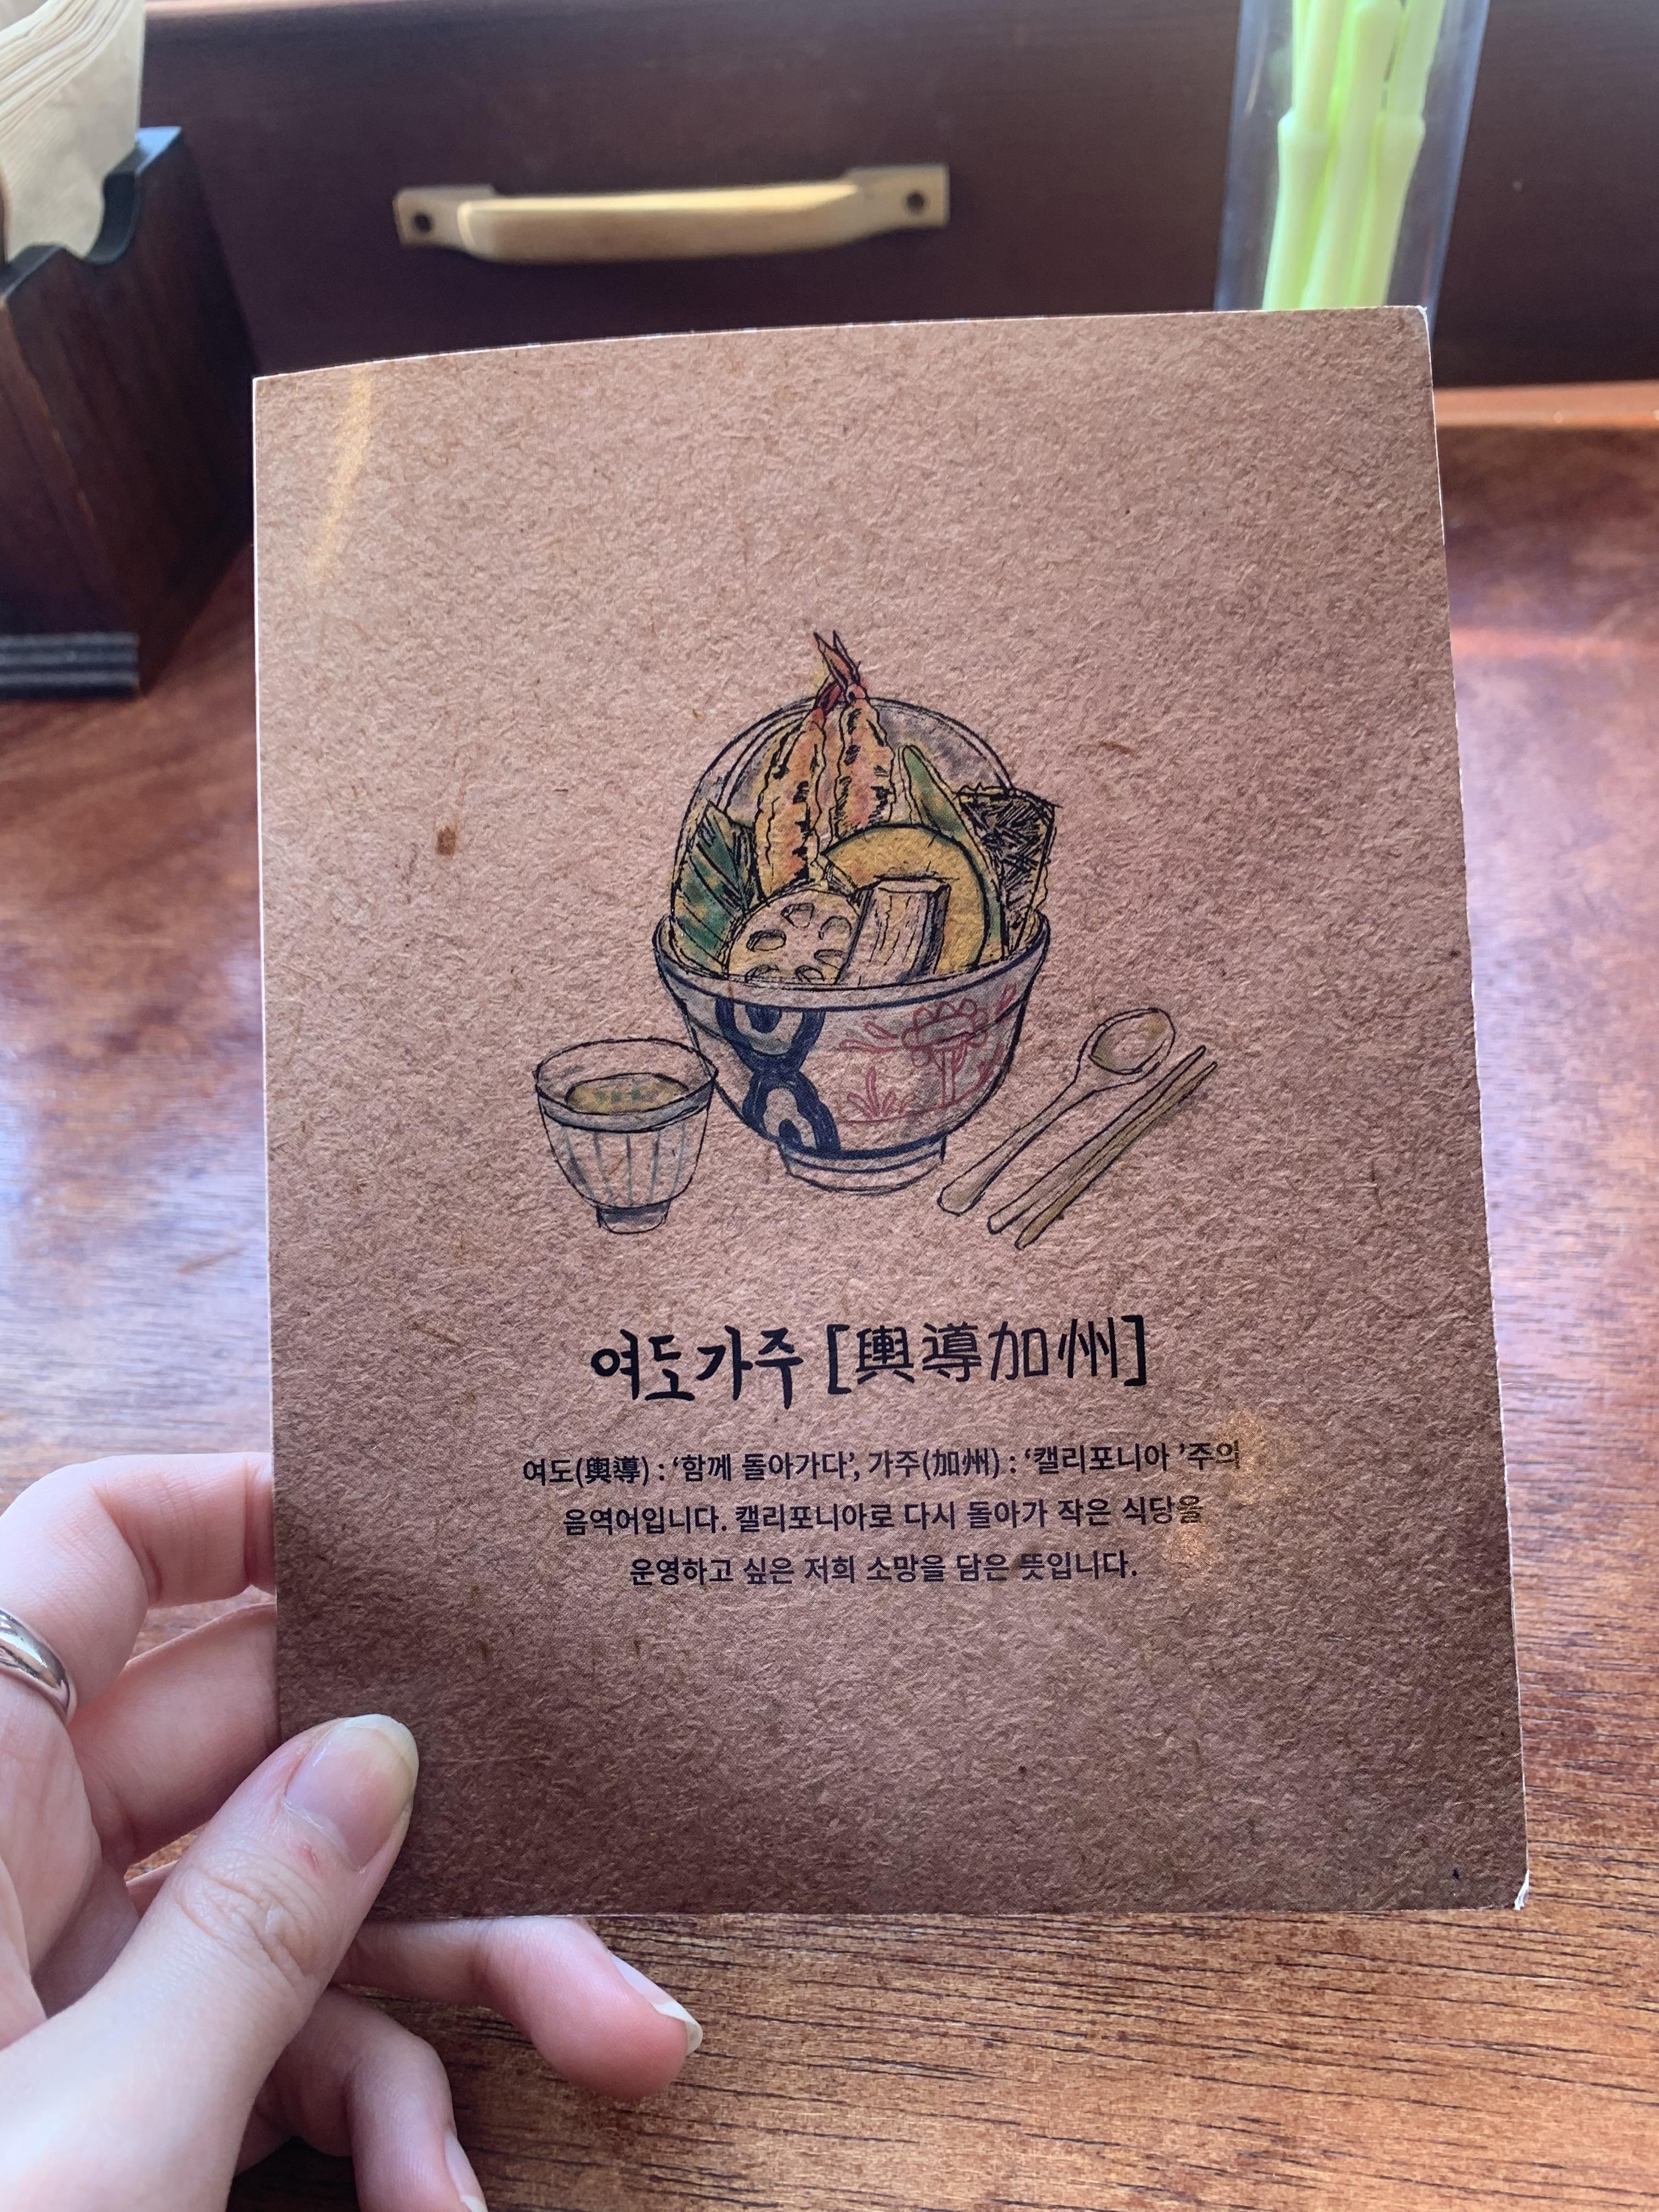 여도가주 [輿導加州]
여도(輿導) : ‘함께 돌아가다’, 가주(加州) : ‘캘리포니아 ’주의
음역어입니다. 캘리포니아로 다시 돌아가 작은 식당을
운영하고 싶은 저희 소망을 담은 뜻입니다.